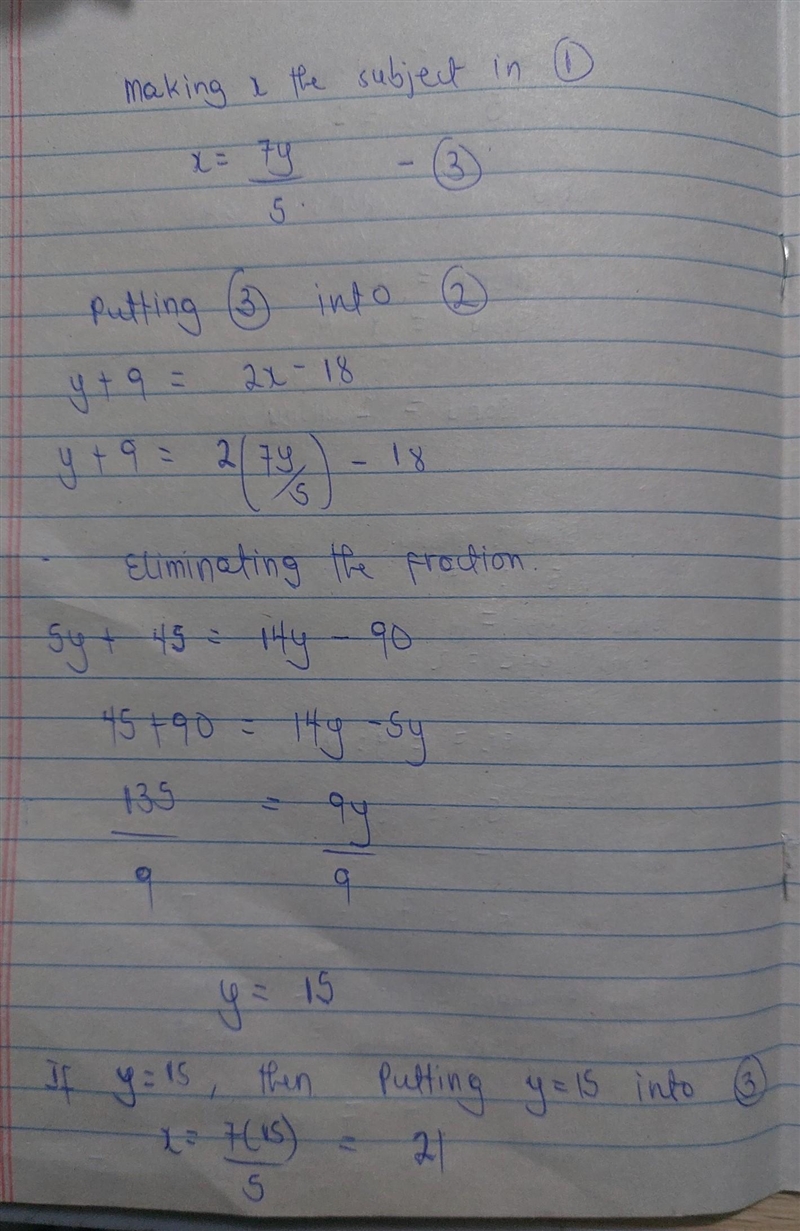 Making x the subject in ①
x = 7y/5 - ③
Putting ③ into ②
y + 9 = 2x - 18
y + 9 = 2(7y/5) - 18
Eliminating the fraction.
5y + 45 = 14y - 90
45 + 90 = 14y - 5y
135/9 = 9y/9
y = 15
If y = 15, then Putting y = 15 into ③
x = 7(15)/5 = 21